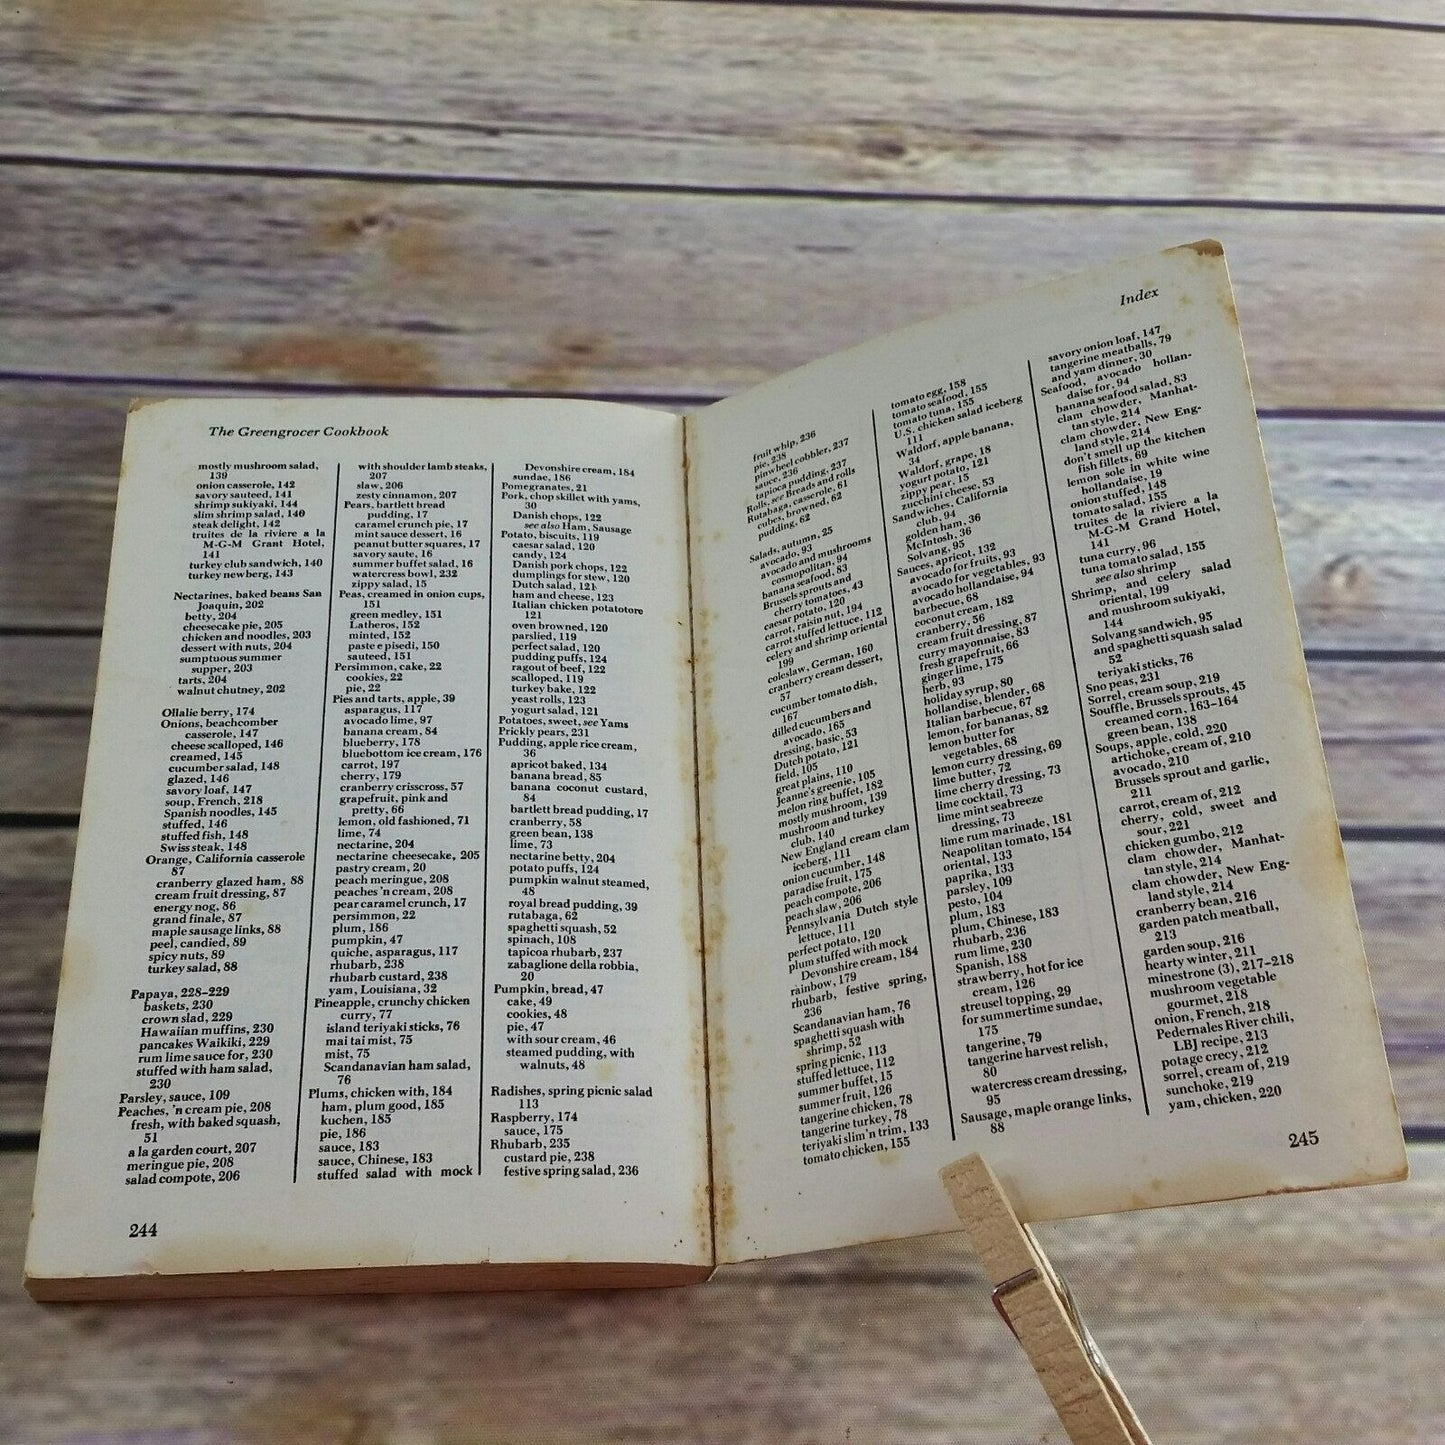 The Greengrocer Cookbook
mostly mushroom salad,
139
onion casserole, 142
savory sauteed, 141
shrimp sukiyaki, 144
slim shrimp salad, 140
steak delight, 142
truites de la riviere a la
M-G-M Grant Hotel,
141
turkey club sandwich, 140
turkey newberg, 143
Nectarines, baked beans San
Joaquin, 202
betty, 204
cheesecake pie, 205
chicken and noodles, 203
dessert with nuts, 204
sumptuous summer
supper, 203
tarts, 204
walnut chutney, 202
Ollalie berry, 174
Onions, beachcomber
casserole, 147
cheese scalloped, 146
creamed, 145
cucumber salad, 148
glazed, 146
savory loaf, 147
soup, French, 218
Spanish noodles, 145
stuffed, 146
stuffed fish, 148
Swiss steak, 148
Orange, California casserole
87
cranberry glazed ham, 88
cream fruit dressing, 87
energy nog, 86
grand finale, 87
maple sausage links, 88
peel, candied, 89
spicy nuts, 89
turkey salad, 88
Papaya, 228-229
baskets, 230
crown slad, 229
Hawaiian muffins, 230
pancakes Waikiki, 229
rum lime sauce for, 230
stuffed with ham salad,
230
Parsley, sauce, 109
Peaches, 'n cream pie, 208
fresh, with baked squash,
51
a la garden court, 207
meringue pie, 208
salad compote, 206
with shoulder lamb steaks,
207
slaw, 206
zesty cinnamon, 207
Pears, bartlett bread
pudding, 17
caramel crunch pie, 17
mint sauce dessert, 16
peanut butter squares, 17
savory saute, 16
summer buffet salad, 16
watercress bowl, 232
zippy salad, 15
Peas, creamed in onion cups,
151
green medley, 151
Latheros, 152
minted, 152
paste e pisedi, 150
sauteed, 151
Persimmon, cake, 22
cookies, 22
pie, 22
Pies and tarts, apple, 39
asparagus, 117
avocado lime, 97
banana cream, 84
blueberry, 178
bluebottom ice cream, 176
carrot, 197
cherry, 179
cranberry crisscross, 57
grapefruit, pink and
pretty, 66
lemon, old fashioned, 71
lime, 74
nectarine, 204
nectarine cheesecake, 205
pastry cream, 20
peach meringue, 208
peaches 'n cream, 208
pear caramel crunch, 17
persimmon, 22
plum, 186
pumpkin, 47
quiche, asparagus, 117
rhubarb, 238
rhubarb custard, 238
yam, Louisiana, 32
Pineapple, crunchy chicken
curry, 77
island teriyaki sticks, 76
mai tai mist, 75
mist, 75
Scandanavian ham salad,
76
Plums, chicken with, 184
ham, plum good, 185
kuchen, 185
pie, 186
sauce, 183
sauce, Chinese, 183
stuffed salad with mock
Devonshire cream, 184
sundae, 186
Pomegranates, 21
Pork, chop skillet with yams,
30
Danish chops, 122
see also Ham, Sausage
Potato, biscuits, 119
caesar salad, 120
candy, 124
Danish pork chops, 122
dumplings for stew, 120
Dutch salad, 121
ham and cheese, 123
Italian chicken potatotore
121
oven browned, 120
parslied, 119
perfect salad, 120
pudding puffs, 124
ragout of beef, 122
scalloped, 119
turkey bake, 122
yeast rolls, 123
yogurt salad, 121
Potatoes, sweet, see Yams
Prickly pears, 231
Pudding, apple rice cream,
36
apricot baked, 134
banana bread, 85
banana coconut custard,
84
bartlett bread pudding, 17
cranberry, 58
green bean, 138
lime, 73
nectarine betty, 204
potato puffs, 124
pumpkin walnut steamed,
48
royal bread pudding, 39
rutabaga, 62
spaghetti squash, 52
spinach, 108
tapicoa rhubarb, 237
zabaglione della robbia,
20
Pumpkin, bread, 47
cake, 49
cookies, 48
pie, 47
with sour cream, 46
steamed pudding, with
walnuts, 48
Radishes, spring picnic salad
113
Raspberry, 174
sauce, 175
Rhubarb, 235
custard pie, 238
festive spring salad, 236
244
Index
fruit whip, 236
pie, 238
pinwheel cobbler, 237
sauce, 236
tapioca pudding, 237
Rolls, see Breads and rolls
Rutabaga, casserole, 61
cubes, browned, 62
pudding, 62
Salads, autumn, 25
avocado, 93
avocado and mushrooms
cosmopolitan, 94
banana seafood, 83
Brussels sprouts and
cherry tomatoes, 43
caesar potato, 120
carrot, raisin nut, 194
carrot stuffed lettuce, 112
celery and shrimp oriental
199
coleslaw, German, 160
cranberry cream dessert,
57
cucumber tomato dish,
167
dilled cucumbers and
avocado, 165
dressing, basic, 53
Dutch potato, 121
field, 105
great plains, 110
Jeanne's greenie, 105
melon ring buffet, 182
mostly mushroom, 139
mushroom and turkey
club, 140
New England cream clam
iceberg, 111
onion cucumber, 148
paradise fruit, 175
peach compote, 206
peach slaw, 206
Pennsylvania Dutch style
lettuce, 111
perfect potato, 120
plum stuffed with mock
Devonshire cream, 184
rainbow, 179
rhubarb, festive spring,
236
Scandanavian ham, 76
spaghetti squash with
shrimp, 52
spring picnic, 113
stuffed lettuce, 112
summer buffet, 15
summer fruit, 126
tangerine chicken, 78
tangerine turkey, 78
teriyaki slim'n trim, 133
tomato chicken, 155
tomato egg, 158
tomato seafood, 155
tomato tuna, 155
U.S. chicken salad iceberg
111
Waldorf, apple banana,
34
Waldorf, grape, 18
yogurt potato, 121
zippy pear, 15
zucchini cheese, 53
Sandwiches, California
club, 94
golden ham, 36
McIntosh, 36
Solvang, 95
Sauces, apricot, 132
avocado for fruits, 93
avocado for vegetables, 93
avocado hollandaise, 94
barbecue, 68
coconut cream, 182
cranberry, 56
cream fruit dressing, 87
curry mayonnaise, 83
fresh grapefruit, 66
ginger lime, 175
herb, 93
holiday syrup, 80
hollandise, blender, 68
Italian barbecue, 67
lemon, for bananas, 82
lemon butter for
vegetables, 68
lemon curry dressing, 69
lime butter, 72
lime cherry dressing, 73
lime cocktail, 73
lime mint seabreeze
dressing, 73
lime rum marinade, 181
Neapolitan tomato, 154
oriental, 133
paprika, 133
parsley, 109
pesto, 104
plum, 183
plum, Chinese, 183
rhubarb, 236
rum lime, 230
Spanish, 188
strawberry, hot for ice
cream, 126
streusel topping, 29
for summertime sundae,
175
tangerine, 79
tangerine harvest relish,
80
watercress cream dressing,
95
Sausage, maple orange links,
88
savory onion loaf, 147
tangerine meatballs, 79
and yam dinner, 30
Seafood, avocado hollan-
daise for, 94
banana seafood salad, 83
clam chowder, Manhat-
tan style, 214
clam chowder, New Eng-
land style, 214
don't smell up the kitchen
fish fillets, 69
lemon sole in white wine
hollandaise, 19
onion stuffed, 148
tomato salad, 155
truites de la riviere a la
M-G-M Grand Hotel,
141
tuna curry, 96
tuna tomato salad, 155
see also shrimp
Shrimp, and celery salad
oriental, 199
and mushroom sukiyaki,
144
Solvang sandwich, 95
and spaghetti squash salad
52
teriyaki sticks, 76
Sno peas, 231
Sorrel, cream soup, 219
Souffle, Brussels sprouts, 45
creamed corn, 163-164
green bean, 138
Soups, apple, cold, 220
artichoke, cream of, 210
avocado, 210
Brussels sprout and garlic,
211
carrot, cream of, 212
cherry, cold, sweet and
sour, 221
chicken gumbo, 212
clam chowder, Manhat-
tan style, 214
clam chowder, New Eng-
land style, 214
cranberry bean, 216
garden patch meatball,
213
garden soup, 216
hearty winter, 211
minestrone (3), 217-218
mushroom vegetable
gourmet, 218
onion, French, 218
Pedernales River chili,
LBJ recipe, 213
potage crecy, 212
sorrel, cream of, 219
sunchoke, 219
yam, chicken, 220
245